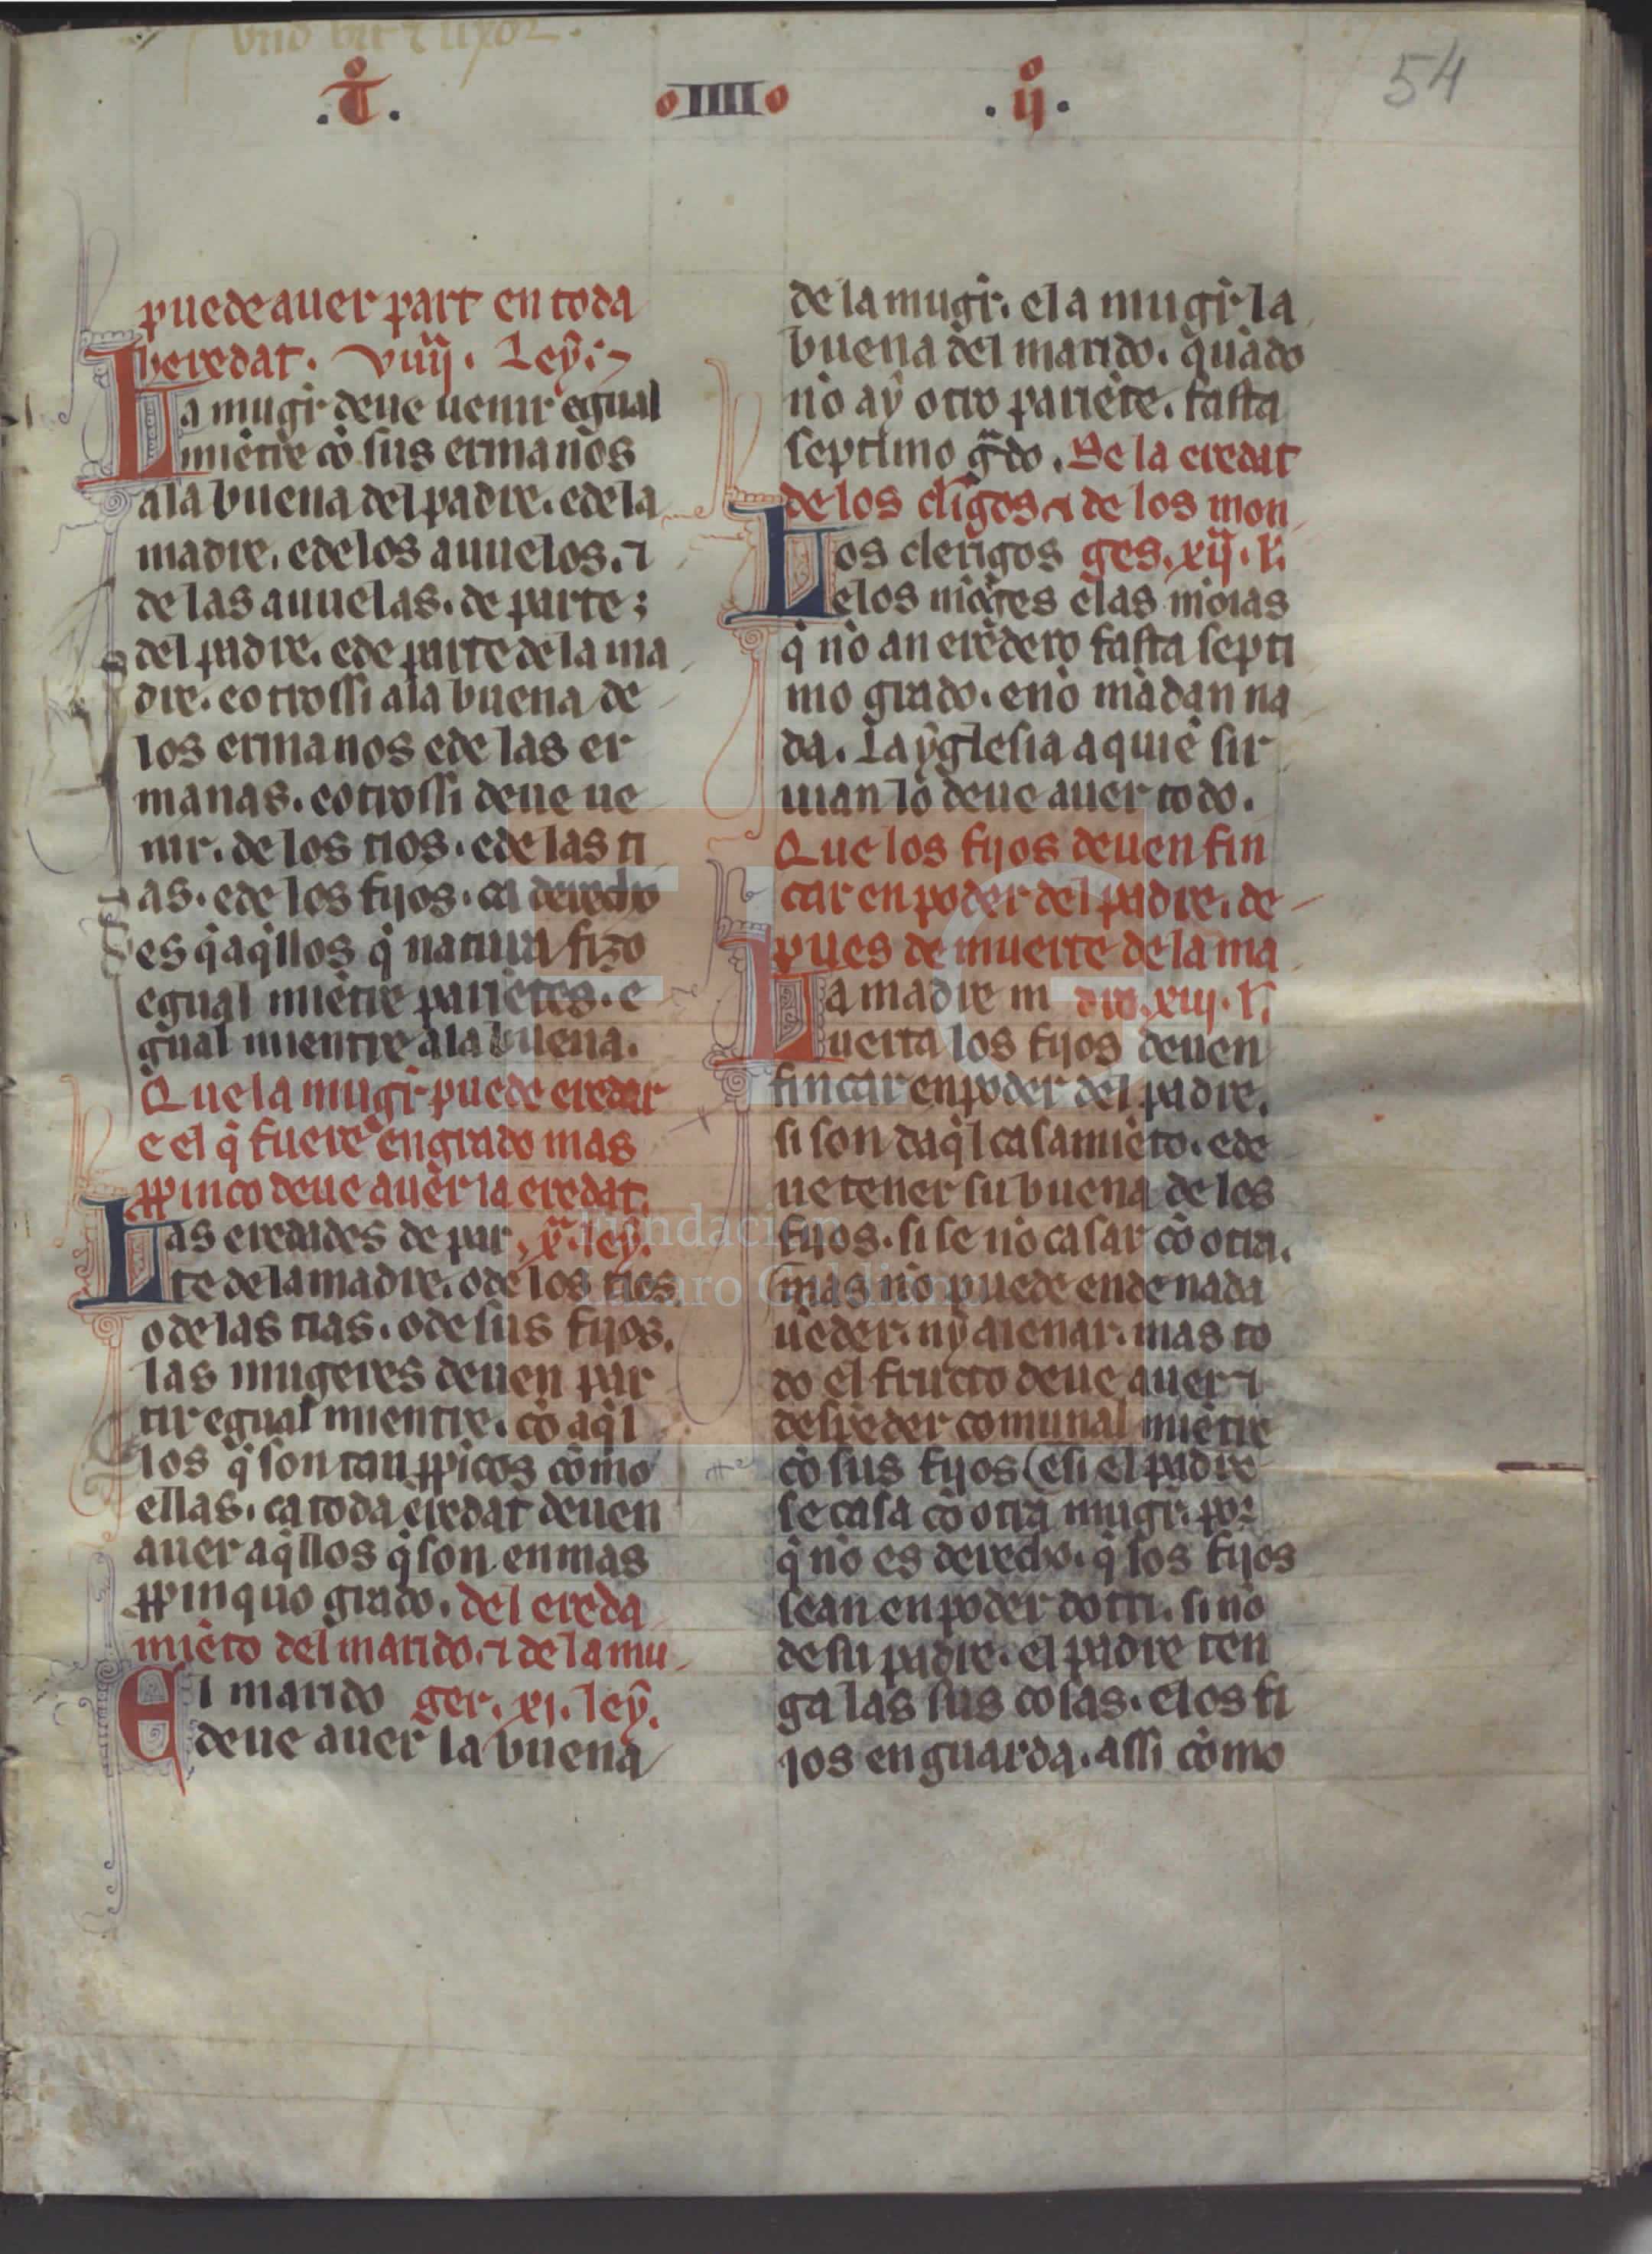 .t̊.
IIII
.ij̊.
54
puede auer part en toda
heredat. viiij. Ley.
La mugr̉ deue uenir egual
miẽtre cõ sus ermanos
ala buena del padre. e de la
madre. e de los auuelos. ⁊
de las auuelas. de parte
del padre. e de parte de la ma
dre. e otrossi ala buena de
los ermanos e de las er
manas. e otrossi deue ue
nir. de los tios. e de las ti
as. e de los fijos. ca derecho
es q̉ aq̉llos q̉ natura fizo
egual miẽtre pariẽtes. e
gual mientre ala buena.
Que la mugr̉ puede eredar
e el q̉ fuere en grado mas
ꝓpinco deue auer la eredat.
Las eredades de par x.ª ley.
te de la madre. o de los tios.
o de las tias. o de sus fijos.
las mugeres deuen par
tir egual mientre. cõ aq̉l
los q̉ son tan ꝓpicos cõmo
ellas. ca toda eredat deuen
auer aq̉llos q̉ son en mas
ꝓpinquo grado. del ereda
miẽto del marido. ⁊ de la mu
El marido ger. xj. ley.
deue auer la buena
de la mugr̉. e la mugr̉ la
buena del marido. quãdo
no ay otro pariẽte. fasta
septimo gᵃdo. De la eredat
de los clĩgos ⁊ de los mon
Los clerigos ges. xij. l̉.
e los mõges e las mõias
q̉ no an eredero fasta septi
mo grado. e nõ mãdan na
da. La yglesia a quiẽ sir
uian lo deue auer todo.
Que los fijos deuen fin
car en poder del padre. de
pues de muerte de la ma
La madre m dre. xiij. l̉.
uerta los fijos deuen
fincar en poder del padre.
si son daq̉l casamiẽto. e de
ue tener su buena de los
fijos. si se no casar cõ otra.
mas no puede ende nada
uẽder. ny aienar. mas to
do el fructo deue auer ⁊
despẽder comunal miẽtre
cõ sus fijos e si el padre
se casa cõ otra mugr̉. por
q̉ no es derecho. q̉ los fijos
sean en poder dotri. si nõ
de su padre. el padre ten
ga las sus cosas. e los fi
jos en guarda. assi cõmo
Fundación
Lázaro Galdiano